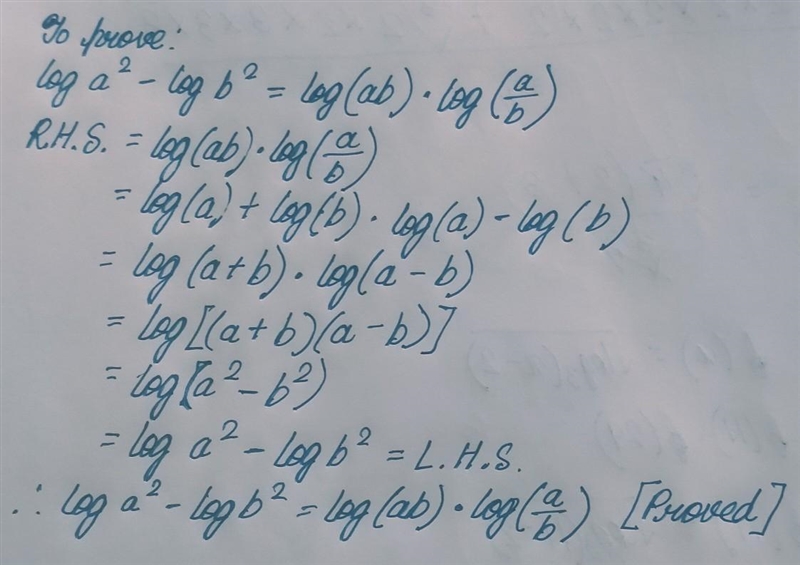 To prove:
log a² - log b² = log(ab) · log(a/b)
R.H.S. = log(ab) · log(a/b)
= log(a) + log(b) · log(a) - log(b)
= log(a+b) · log(a-b)
= log[(a+b)(a-b)]
= log[a² - b²)
= log a² - log b² = L.H.S.
∴ log a² - log b² = log(ab) · log(a/b) [Proved]